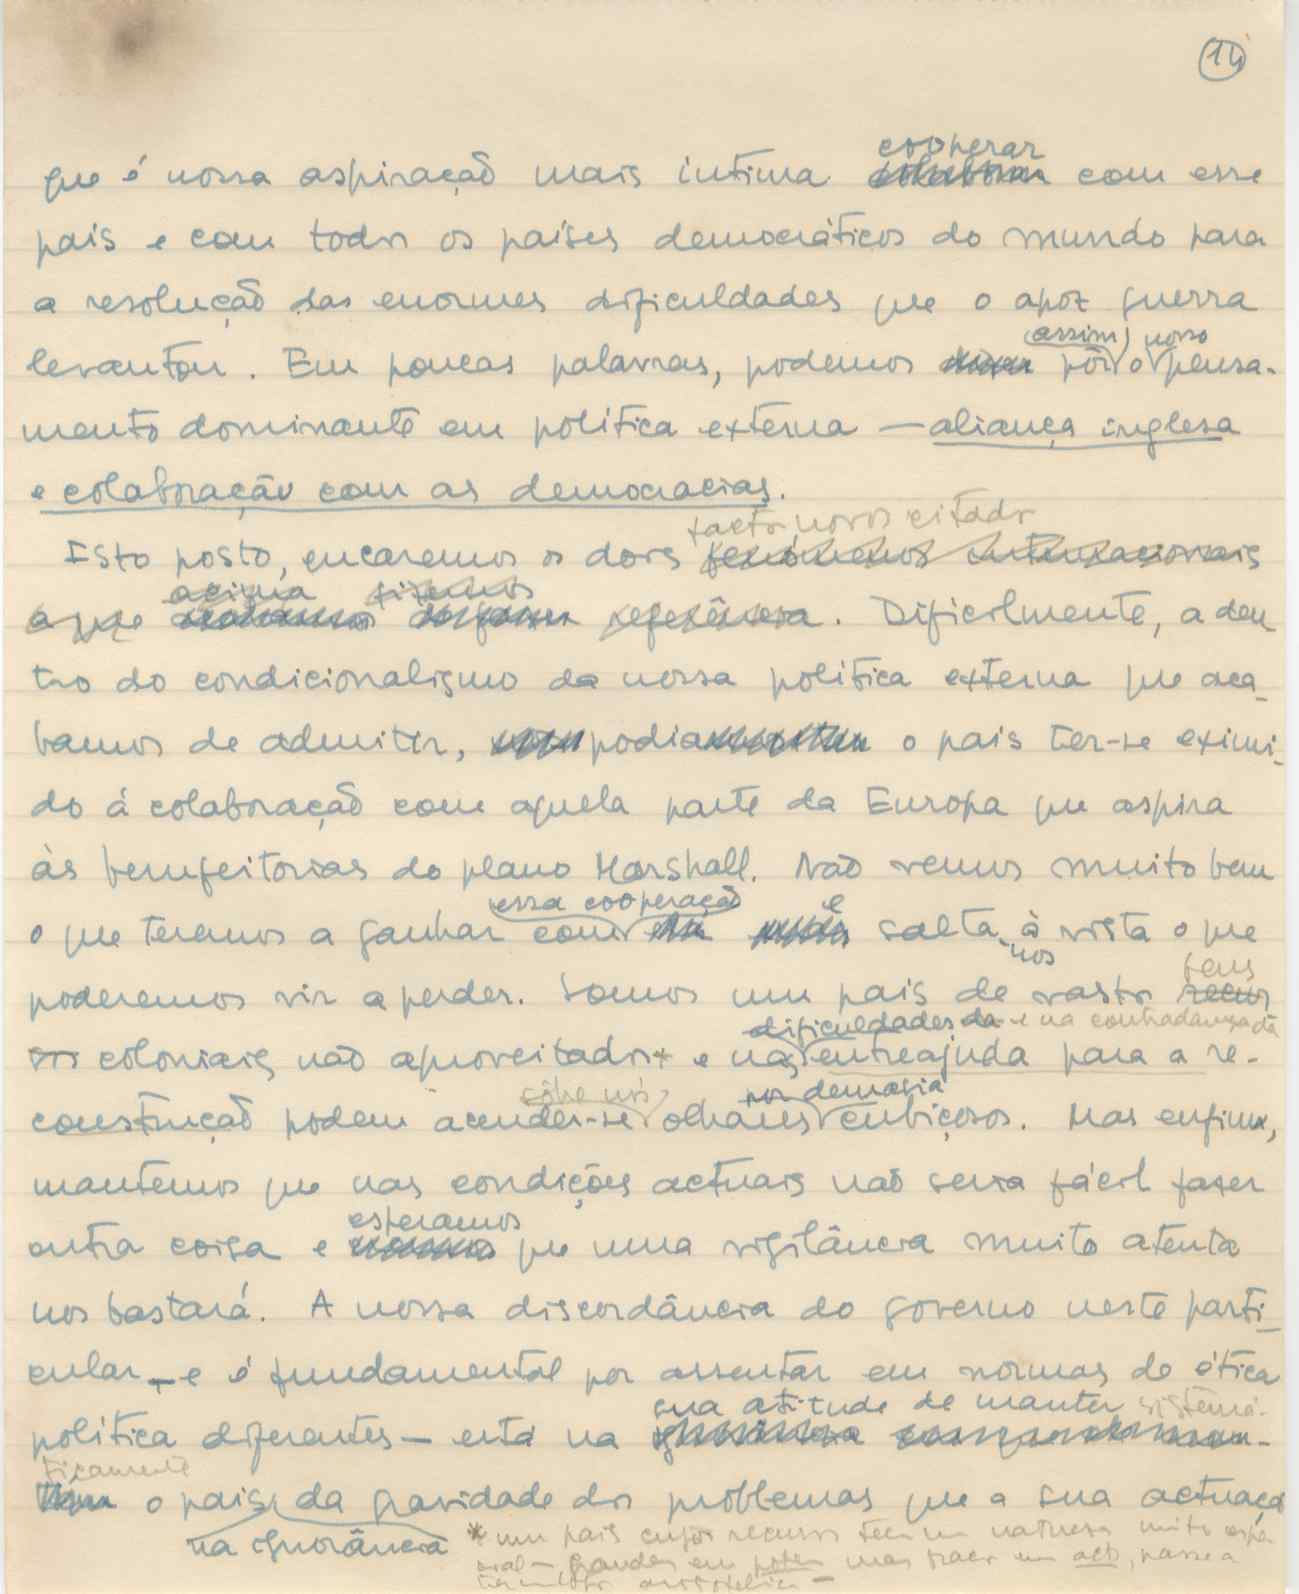 14
cooperar
que é nossa aspiração mais íntima com esse
país e com todos os países democráticos do mundo para
a resolução das enormes dificuldades que o apoz guerra
(assim) nosso
levantou. Em poucas palavras, podemos pôr o pensa-
mento dominante em política externa — aliança inglesa
e colaboração com as democracias.
factos novos citados
Isto posto, encaremos os dois fenómenos internacionais
acima fizemos
a que referência. Dificilmente, a den
tro do condicionalismo da nossa política externa que aca-
bamos de admitir, podia o país ter-se eximi-
do á colaboração com aquela parte da Europa que aspira
às bemfeitorias do plano Marshall. Não vemos muito bem
essa cooperação e
o que teremos a ganhar com salta à vista o que
nos
poderemos vir a perder. Somos um país de vastos recur
bens
dificuldades da e na contradança da
sos coloniais não aproveitados* e nas entreajuda para a re-
sôbre nós por demasia
construção podem acender-se olhares cubiçosos. Mas enfim,
mantemos que nas condições actuais não seria fácil fazer
esperamos
outra coisa e que uma vigilância muito atenta
nos bastará. A nossa discordância do governo neste parti-
cular — e é fundamental por assentar em normas de ética
sua atitude de manter sistemá-
política diferentes — está na
ticamente
o país, da gravidade dos problemas que a sua actuação
na ignorância
* um país cujos recursos teem um natureza muito espe
cial — grandes em poten mas fracos em acto, passe a